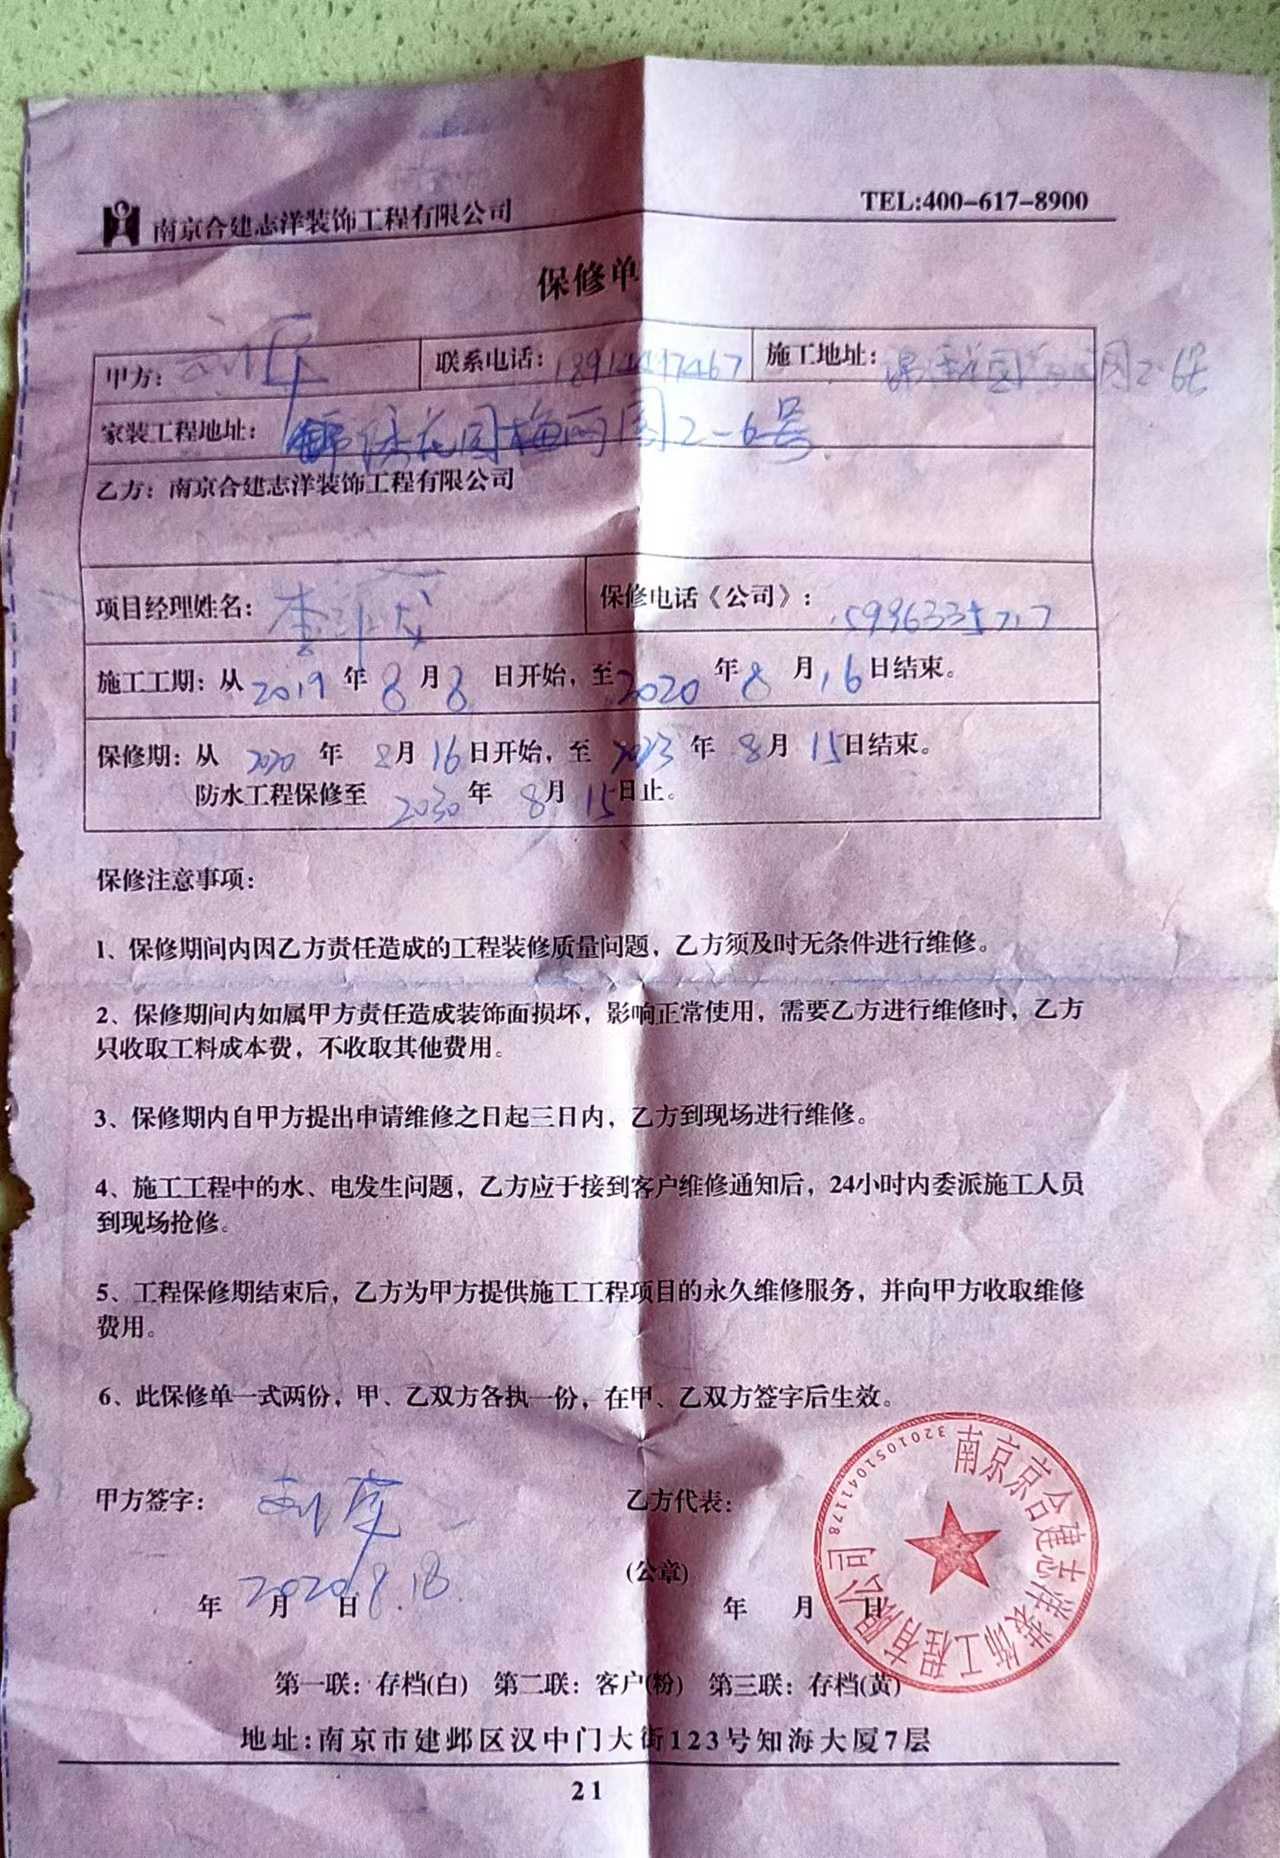 南京合建志洋装饰工程有限公司 TEL:400-617-8900
保修单
甲方： 联系电话： 施工地址：
家装工程地址：锦绣花园梅雨园2-6号
乙方：南京合建志洋装饰工程有限公司
项目经理姓名：李 保修电话《公司》：15996335717
施工工期：从2019年8月8日开始，至2020年8月16日结束。
保修期：从2020年8月16日开始，至2023年8月15日结束。
防水工程保修至2030年8月15日止。
保修注意事项：
1、保修期间内因乙方责任造成的工程装修质量问题，乙方须及时无条件进行维修。
2、保修期间内如属甲方责任造成装饰面损坏，影响正常使用，需要乙方进行维修时，乙方
只收取工料成本费，不收取其他费用。
3、保修期内自甲方提出申请维修之日起三日内，乙方到现场进行维修。
4、施工工程中的水、电发生问题，乙方应于接到客户维修通知后，24小时内委派施工人员
到现场抢修。
5、工程保修期结束后，乙方为甲方提供施工工程项目的永久维修服务，并向甲方收取维修
费用。
6、此保修单一式两份，甲、乙双方各执一份，在甲、乙双方签字后生效。
甲方签字： 乙方代表：
(公章)
年 月 日 2020.8.18 年 月 日
南京京合建志洋装饰工程有限公司
3201051041178
第一联：存档(白) 第二联：客户(粉) 第三联：存档(黄)
地址:南京市建邺区汉中门大街123号知海大厦7层
21